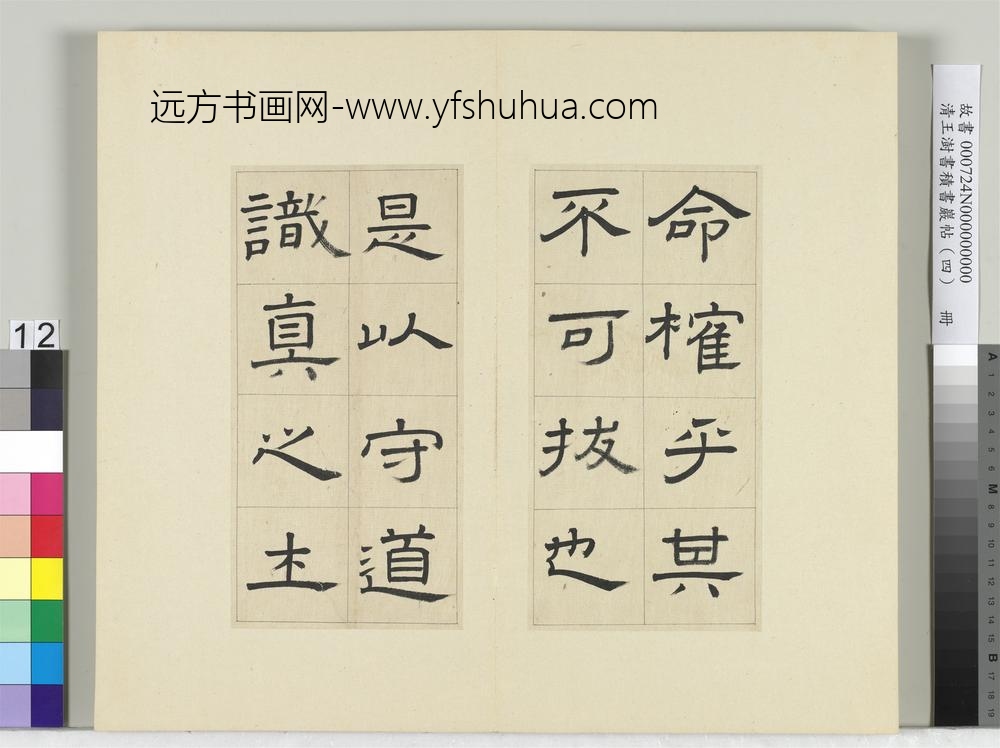 远方书画网-www.yfshuhua.com
命榷乎其
不可拔也
是以守道
識真之士
故書 000724N000000000
清王澍書積書巖帖（四） 冊
12
A 1 2 3 4 5 6 M 8 9 10 11 12 13 14 15 B 17 18 19